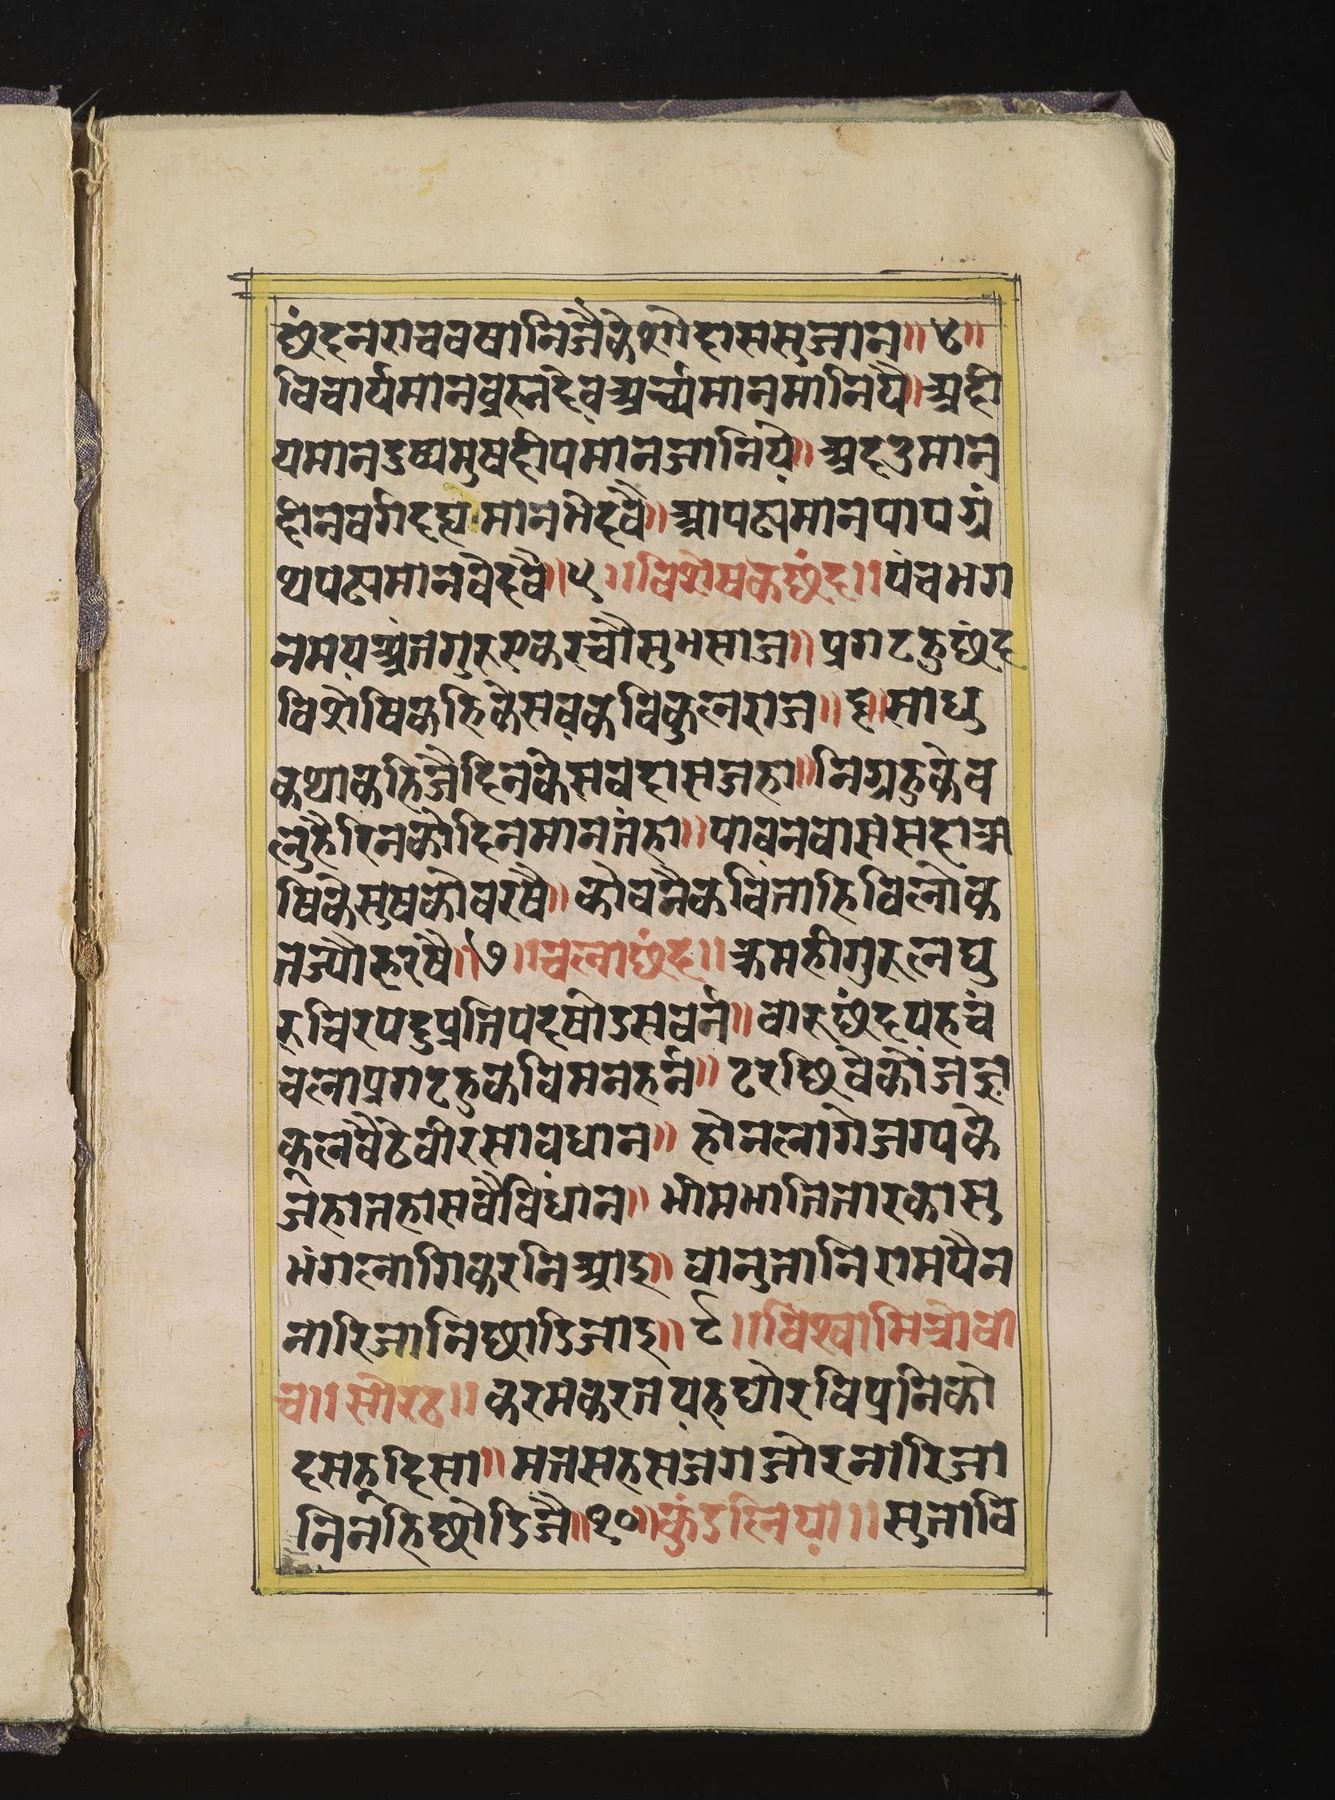 छंदनराचवषानिजैकेशोदाससुजान॥४॥
विचार्यमानब्रह्मदेवअर्च्यमानमानियै॥अदी
यमानदुष्यमुषदीपमानजानियै॥अदंडमान
दीनवर्गदंड्यमानभेदवै॥अपठामानपापग्रं
थपठामानवेदवै॥५॥विशेषकछंद॥पंचभग
नमयअंतगुरुएकरचौसुभसाज॥प्रगटहुछंद
विशेषिकहिकेसवकविकुलराज॥६॥साधु
कथाकहिजैदिनकेसवदासजहा॥निग्रहकेव
लुहैदिनकौदिनमानतहा॥पावनवाससदाऋ
षिकेसुषकौवरषै॥कोवनैकविताहिविलोक
तज्यौहरषै॥७॥चलाछंद॥क्रमहीगुरुलघु
रुचिरपदुप्रतिपदषोडसवर्न॥चारुछंदयहचं
चलाप्रगटहुकविमनहर्न॥टरछिवेकौजज्ञ
कूलबैठेवीरसावधान॥होनलागेजग्यके
जहातहासवैविधान॥भीमभातितारकासु
भंगलागिकरनिआइ॥वानुतानिरामपैन
नारिजानिछाडिजाइ॥९॥विश्वामित्रोवा
च॥सोरठ॥करमकरतयहघोरविप्रनिको
दसहूदिसा॥मत्तसहसंजगजोरनारिजा
निनहिछोडिजै॥१०॥कुंडलिया॥सुतावि